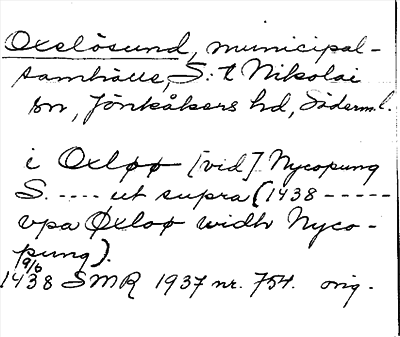 Oxelösund, municipal-
samhälle, S:t Nikolai
sn, Jönåkers hd, Söderml.
i Oxløø [vid] Nycopung
S. .... ut supra (1438 -----
vpa Øxloø widh Nyco-
pung).
1438 9/6 SMR 1937 nr. 754. orig.